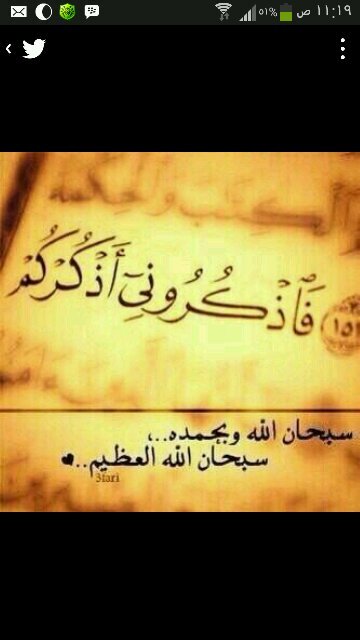 ٥١% ص ١١:١٩
الكتب والحكمة
١٥١ فَاذْكُرُونِي أَذْكُرْكُمْ
سبحان الله وبحمده..،
سبحان الله العظيم..
3fari